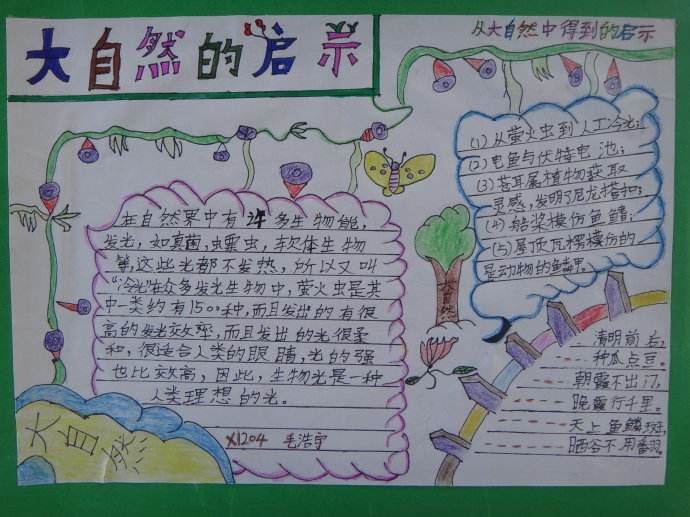 大自然的启示
从大自然中得到的启示
在自然界中有许多生物能,
发光,如真菌,蠕虫,软体生物
等,这些光都不发热,所以又叫
“冷光”在众多发光生物中,萤火虫是其
中一类约有1500种,而且发出的有很
高的发光效率,而且发出的光很柔
和,很适合人类的眼睛,光的强
也比效高,因此,生物光是一种
人类理想的光。
X1204 毛浩宇
(1)从萤火虫到人工冷光;
(2)电鱼与伏特电池;
(3)苍耳属植物获取
灵感,发明了尼龙搭扣;
(4)船桨模仿鱼鳍;
(5)屋顶瓦楞模仿的
是动物的鳞甲。
大自然
清明前后,
种瓜点豆。
朝霞不出门,
晚霞行千里。
天上鱼鳞斑,
晒谷不用翻。
大自然